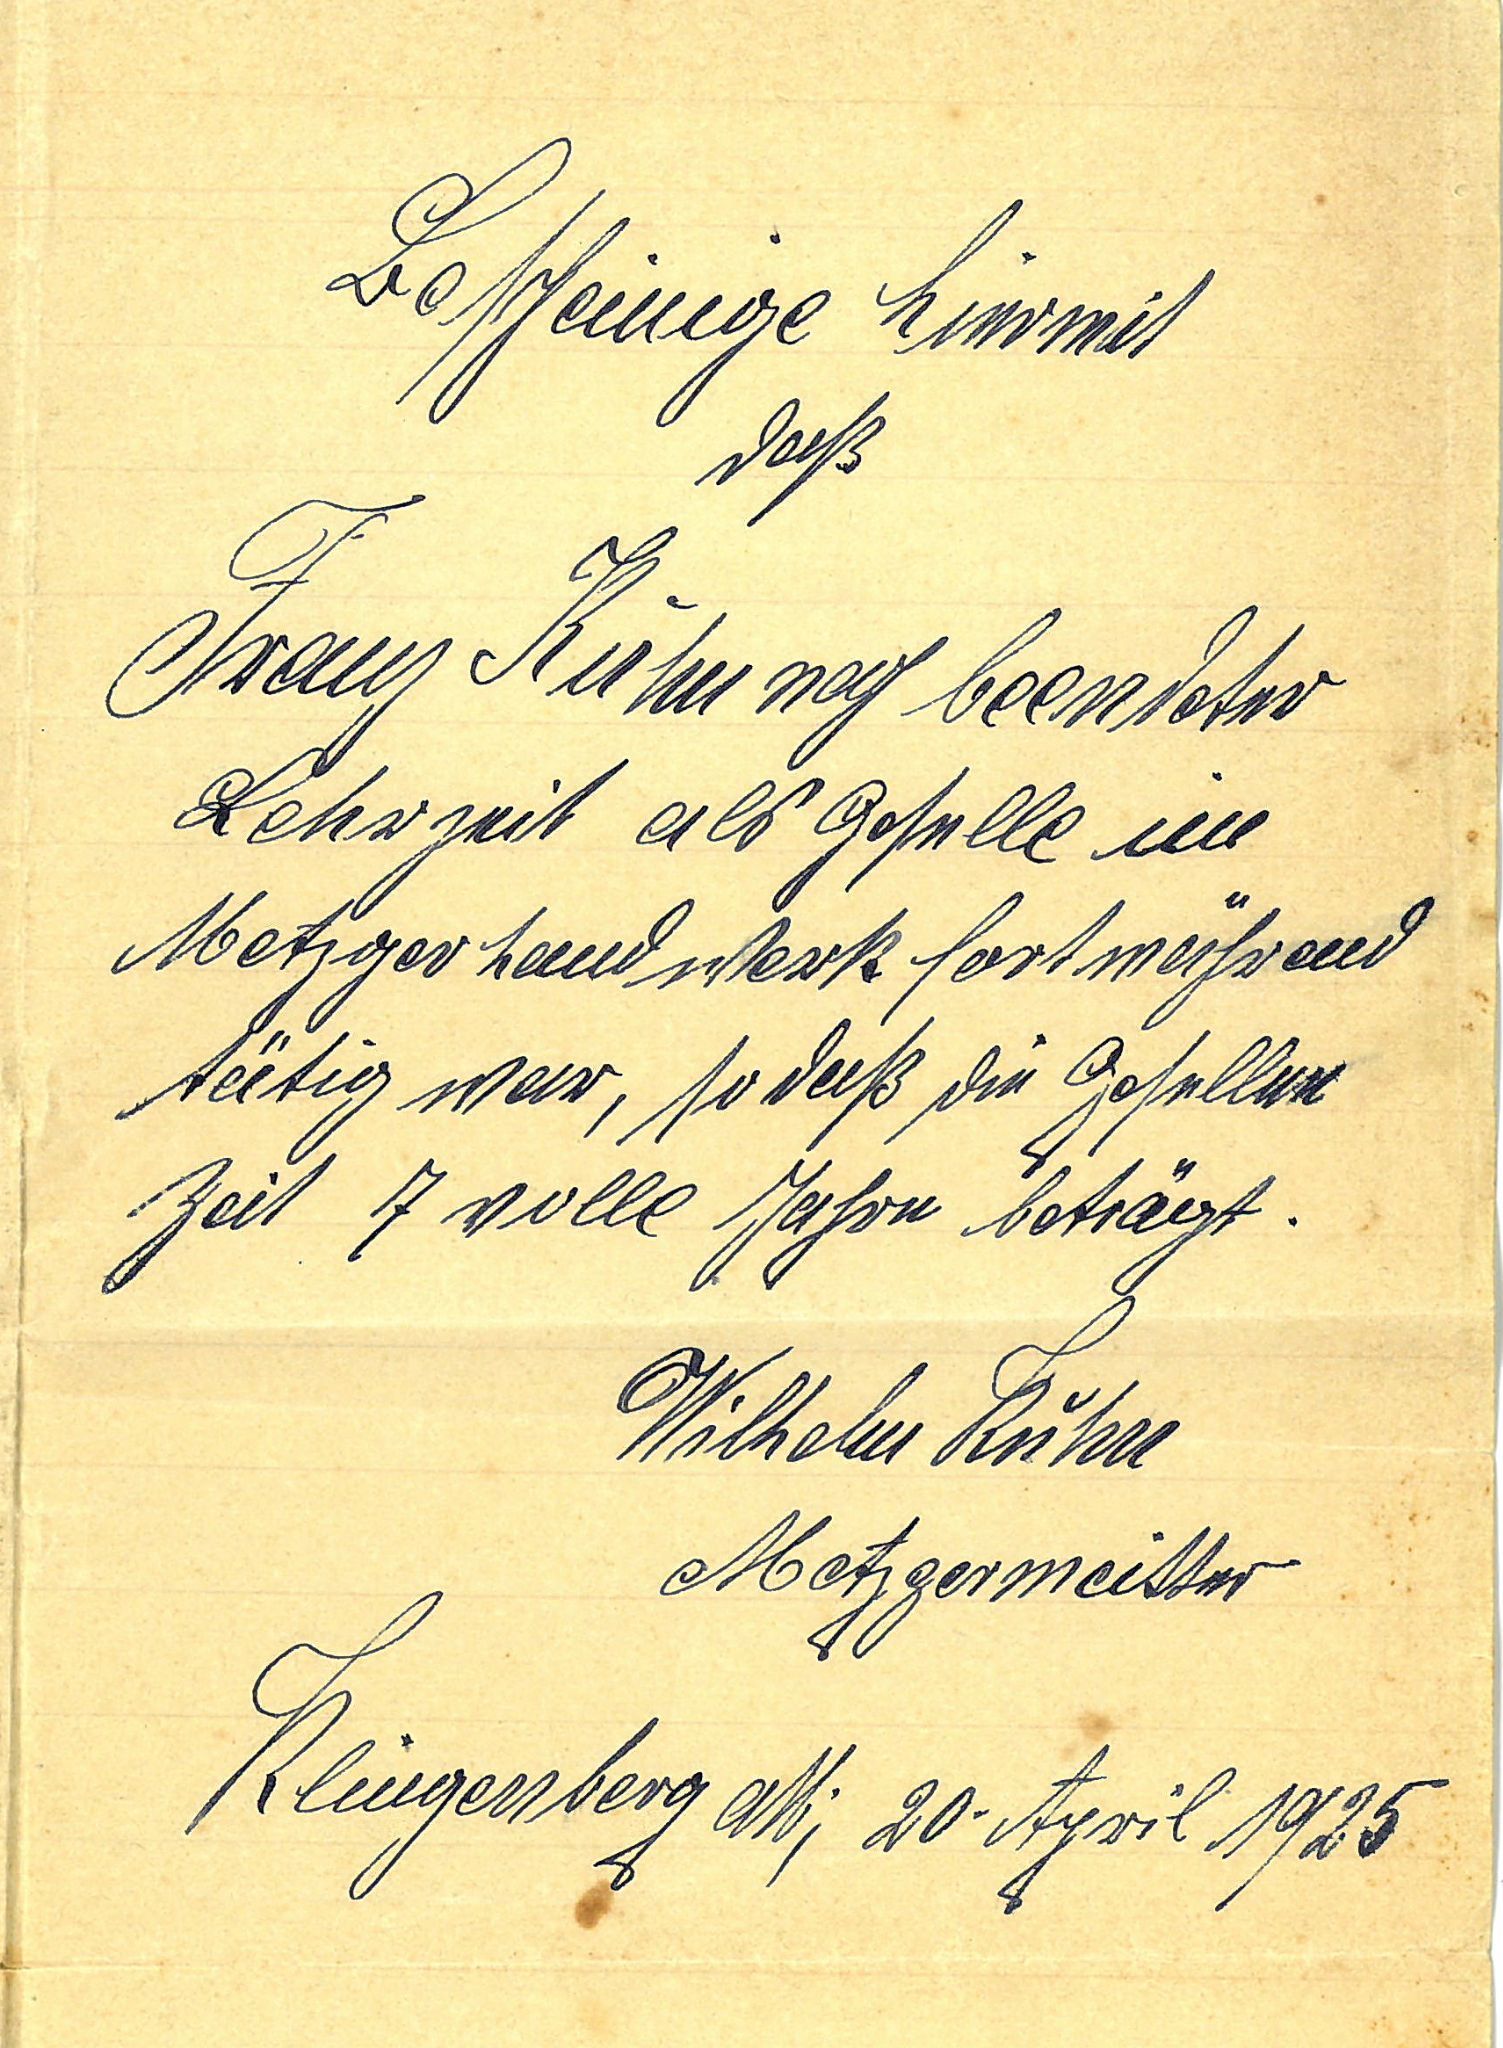 Bescheinige hiermit
daß
Franz Kuhn nach beendeter
Lehrzeit als Geselle im
Metzgerhandwerk fortwährend
tätig war, so daß die Gesellen
Zeit 7 volle Jahre beträgt.
Wilhelm Kuhn
Metzgermeister
Klingenberg a/M, 20. April 1925